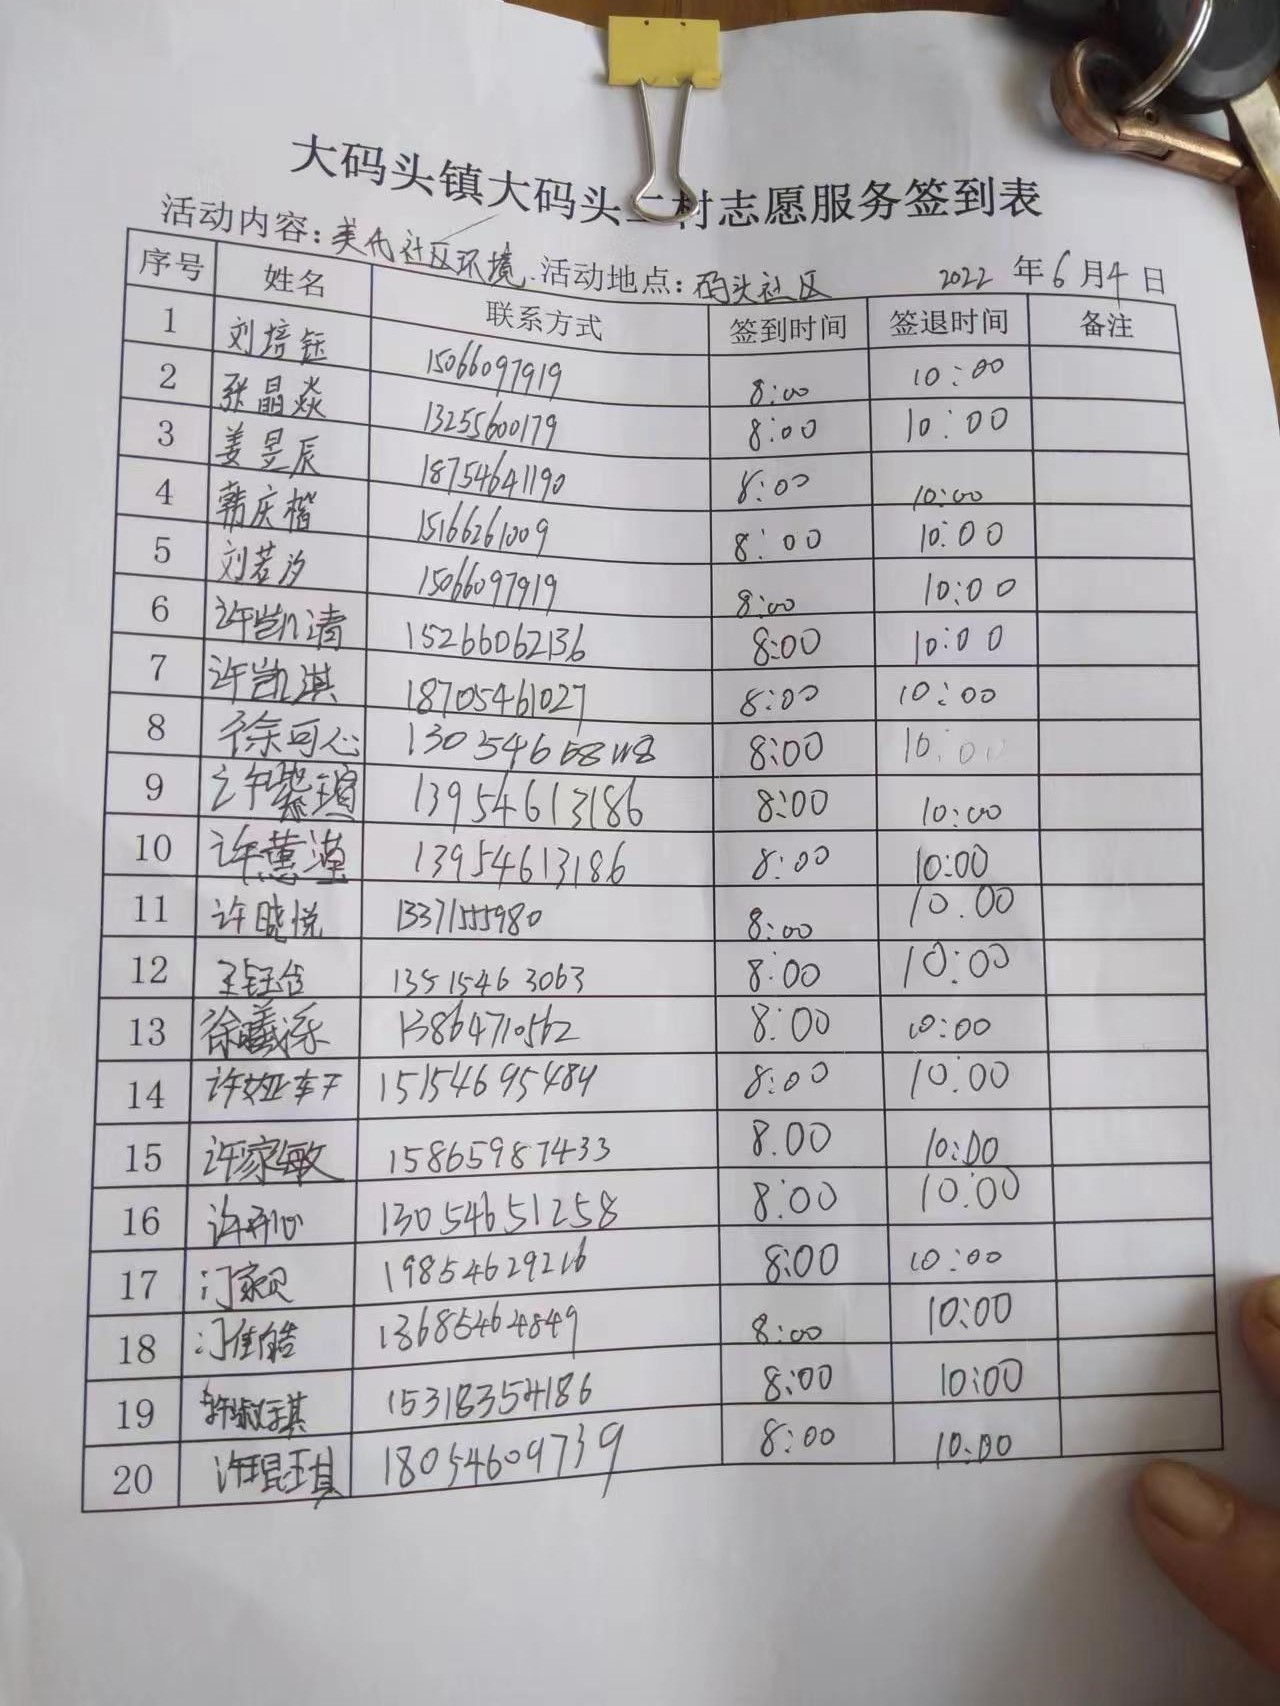 大码头镇大码头二村志愿服务签到表
活动内容：美化社区环境 活动地点：码头社区 2022年6月4日
序号 姓名 联系方式 签到时间 签退时间 备注
1 刘培钰 15066097919 8:00 10:00
2 张晶焱 13255600179 8:00 10:00
3 姜昱辰 18754641190 8:00 10:00
4 韩庆楷 15166261009 8:00 10:00
5 刘若汐 15066097919 8:00 10:00
6 许凯清 15266062136 8:00 10:00
7 许凯淇 18705461027 8:00 10:00
8 徐可心 8:00 10:00
9 许紫瑄 13954613186 8:00 10:00
10 许薰滢 13954613186 8:00 10:00
11 许晓悦 13371555980 8:00 10.00
12 13515463063 8:00 10:00
13 徐曦泺 13864710562 8:00 10:00
14 15154695484 8:00 10:00
15 许家敏 15865987433 8.00 10:00
16 许开心 13054651258 8:00 10:00
17 门家贝 19854629216 8:00 10:00
18 门佳皓 13685464849 8:00 10:00
19 15318354186 8:00 10:00
20 许琨琪 18054609739 8:00 10:00